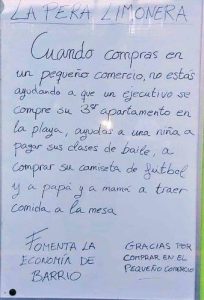 LA PERA LIMONERA
Cuando compras en
un pequeño comercio, no estás
ayudando a que un ejecutivo se
compre su 3er apartamento en
la playa, ayudas a una niña a
pagar sus clases de baile, a
comprar su camiseta de futbol
y a papá y a mamá a traer
comida a la mesa
FOMENTA LA
ECONOMÍA DE
BARRIO
GRACIAS POR
COMPRAR EN EL
PEQUEÑO COMERCIO